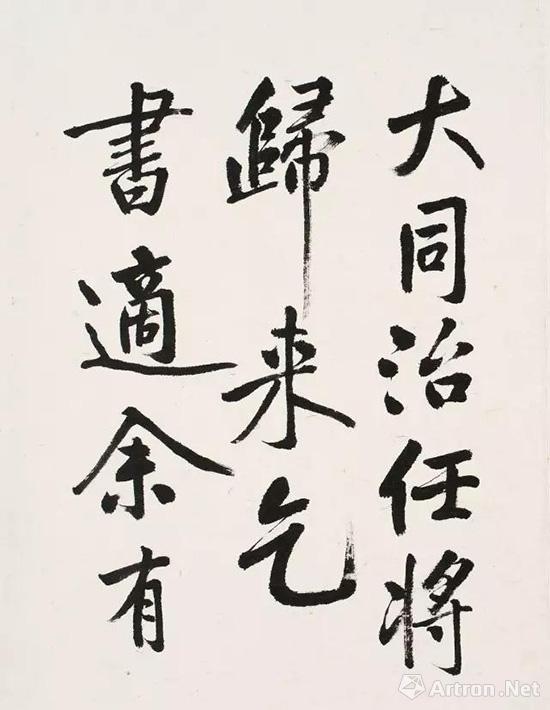 大同治任将
歸来乞
書適余有
Artron.Net